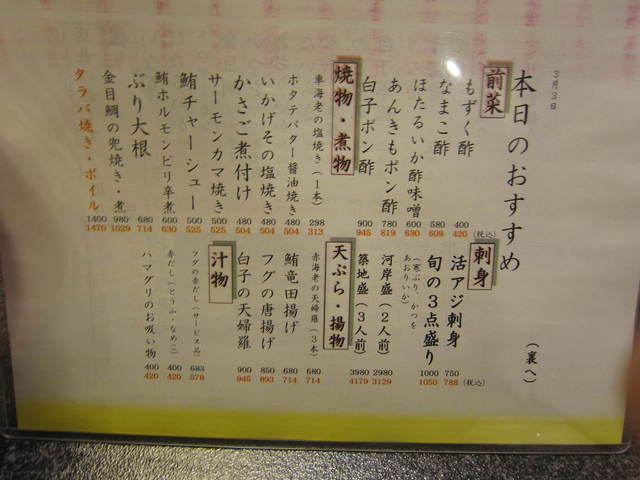 3月3日
本日のおすすめ
(裏へ)
前菜
もずく酢 400 420 (税込)
なまこ酢 580 609
ほたるいか酢味噌 600 630
あんきもポン酢 780 819
白子ポン酢 900 945
焼物・煮物
車海老の塩焼き(1本) 298 313
ホタテバター醤油焼き 480 504
いかげその塩焼き 480 504
かさご煮付け 480 504
サーモンカマ焼き 500 525
鮪チャーシュー 500 525
鮪ホルモンピリ辛煮 600 630
ぶり大根 680 714
金目鯛の兜焼き・煮 980 1029
タラバ焼き・ボイル 1400 1470
刺身
活アジ刺身 750 788 (税込)
旬の3点盛り 1000 1050
(寒ぶり、かつを
あおりいか)
河岸盛(2人前) 2980 3129
築地盛(3人前) 3980 4179
天ぷら・揚物
赤海老の天婦羅(3本) 680 714
鮪竜田揚げ 680 714
フグの唐揚げ 850 893
白子の天婦羅 900 945
汁物
フグの赤だし(サービス品) 683 578
赤だし(とうふ・なめこ) 400 420
ハマグリのお吸い物 400 420